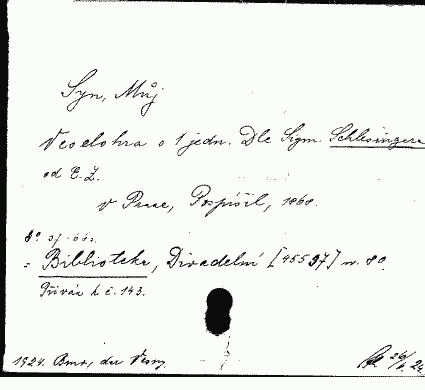 Syn, Můj
Veselohra o 1 jedn. Dle Sigm. Schlesingera
od E. Z.
v Praze, Pospíšil, 1868.
8° s
= Bibliotéka, Divadelní [45537] n. 80
Přívaz k č. 143.
1924. Brno, dar